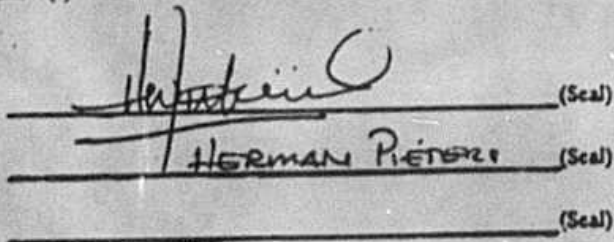 (Seal)
HERMAN PIETERI (Seal)
(Seal)